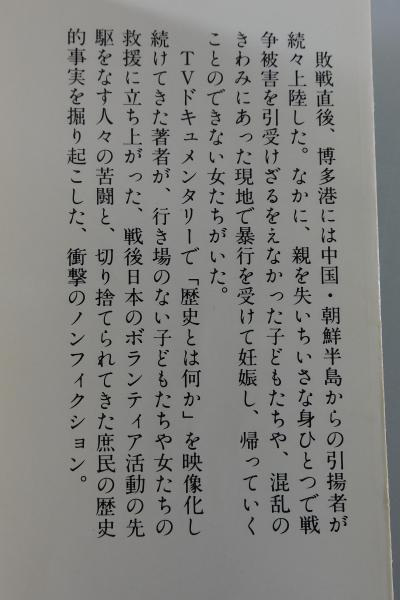 敗戦直後、博多港には中国・朝鮮半島からの引揚者が
続々上陸した。なかに、親を失いちいさな身ひとつで戦
争被害を引受けざるをえなかった子どもたちや、混乱の
きわみにあった現地で暴行を受けて妊娠し、帰っていく
ことのできない女たちがいた。
TVドキュメンタリーで「歴史とは何か」を映像化し
続けてきた著者が、行き場のない子どもたちや女たちの
救援に立ち上がった、戦後日本のボランティア活動の先
駆をなす人々の苦闘と、切り捨てられてきた庶民の歴史
的事実を掘り起こした、衝撃のノンフィクション。